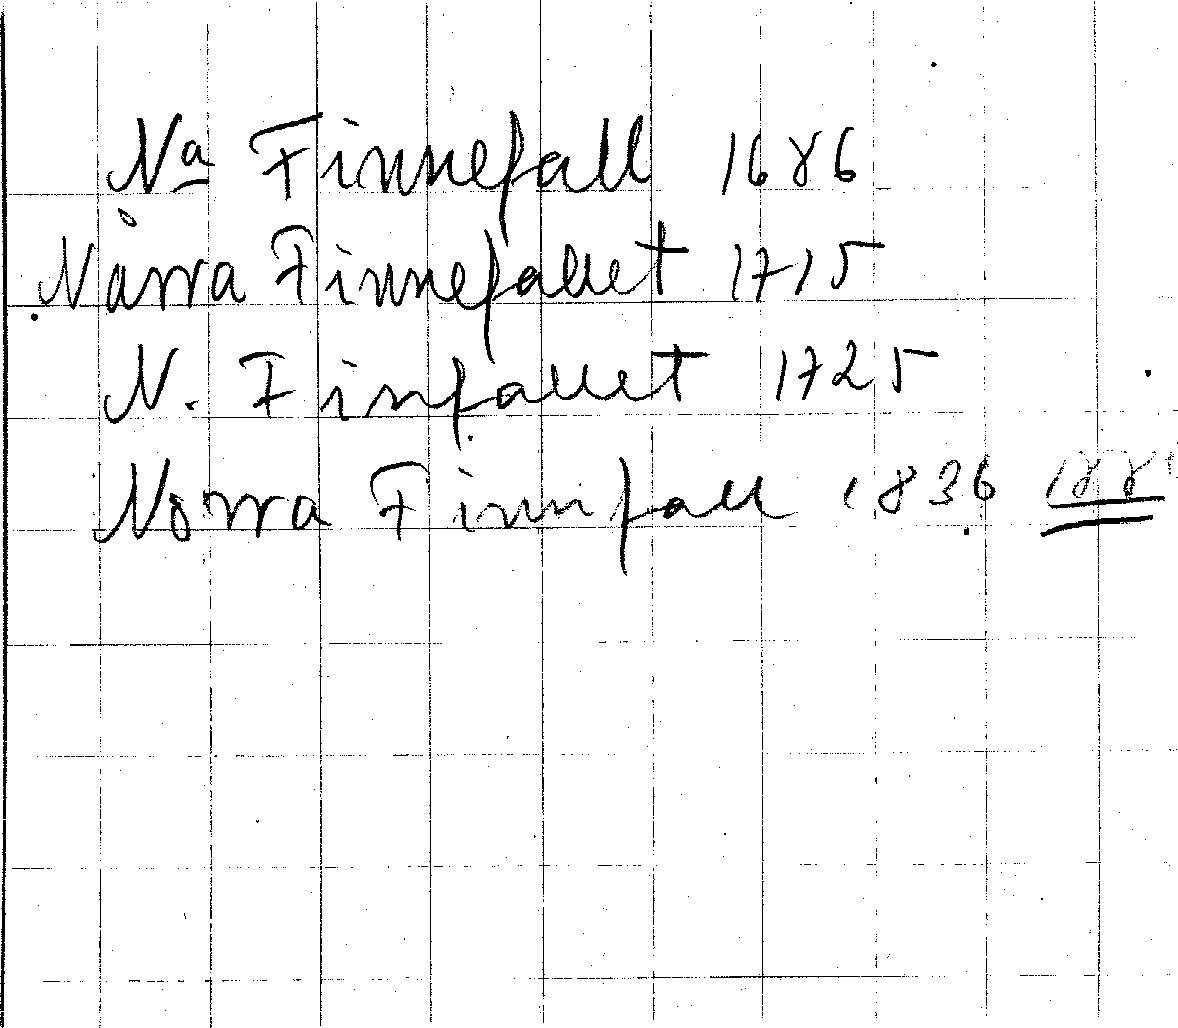 Na Finnefall 1686
Nårra Finnefallet 1715
N. Finfallet 1725
Norra Finnfall 1836